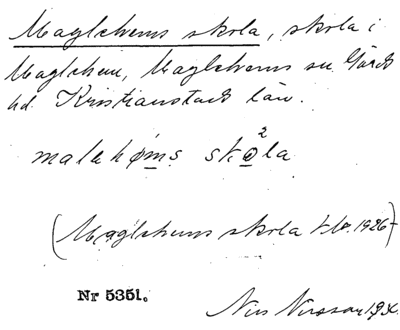 Maglehems skola, skola i
Maglehem, Maglehems sn Gärds
hd. Kristianstads län.
malahøms skola
2
(Maglehems skola 1926)
Nr 5351.
Nils